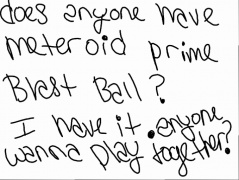 does anyone have
meteroid prime
Blast Ball?
I have it. anyone
wanna play together?